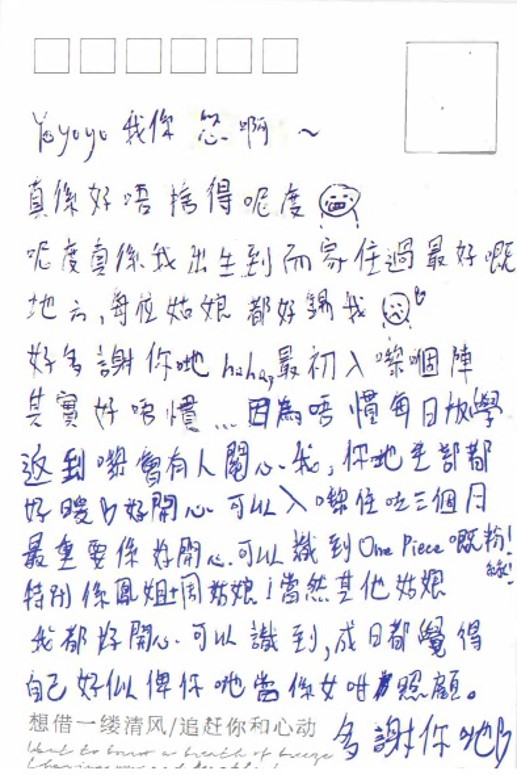 Yoyoyo 我係 啊 ~
真係好唔捨得呢度
呢度真係我出生到而家住過最好嘅
地方,每位姑娘都好錫我
好多謝你哋 haha,最初入嚟嗰陣
其實好唔慣...因為唔慣每日放學
返到嚟會有人關心我,你地全部都
好暖 好開心可以入嚟住咗三個月
最重要係好開心可以識到One Piece嘅粉絲!
特別係鳳姐+周姑娘!當然其他姑娘
我都好開心可以識到,成日都覺得
自己好似俾你哋當係女咁照顧。
想借一缕清风/追赶你和心动
多謝你哋
Want to know a breath of breeze